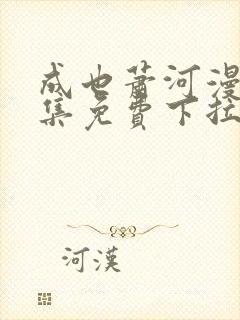 成也萧河漫
集免費下拉
河漢